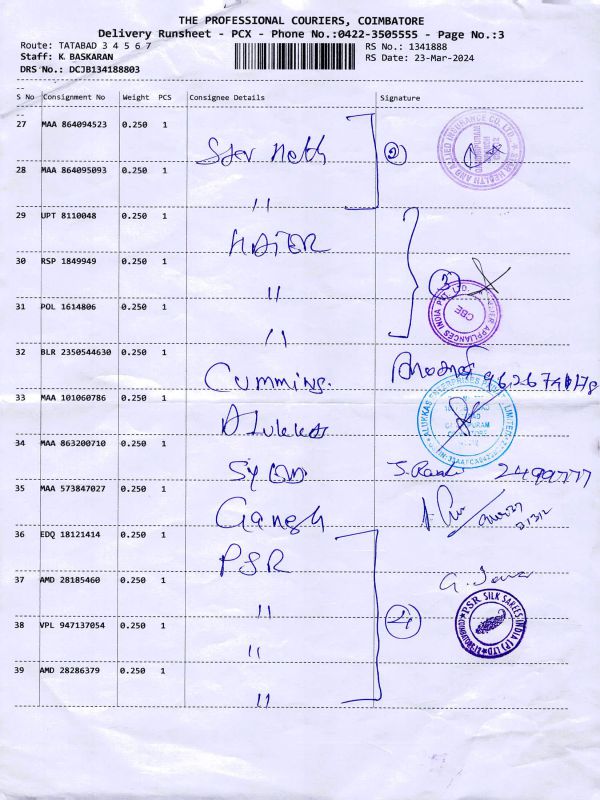 THE PROFESSIONAL COURIERS, COIMBATORE
Delivery Runsheet - PCX - Phone No.:0422-3505555 - Page No.:3
Route: TATABAD 3 4 5 6 7 RS No.: 1341888
Staff: K. BASKARAN RS Date: 23-Mar-2024
DRS No.: DCJB134188803
S No Consignment No Weight PCS Consignee Details Signature
27 MAA 864094523 0.250 1
28 MAA 864095093 0.250 1 "
2
29 UPT 8110048 0.250 1 HAIER
30 RSP 1849949 0.250 1 "
3
31 POL 1614806 0.250 1 "
CBE
32 BLR 2350544630 0.250 1 Cummins.
33 MAA 101060786 0.250 1 Alukkas
34 MAA 863200710 0.250 1 2499777
35 MAA 573847027 0.250 1 Gangh
36 EDQ 18121414 0.250 1 PSR
37 AMD 28185460 0.250 1 "
4
PSR SILK SAREES INDIA (P) LTD
38 VPL 947137054 0.250 1 "
39 AMD 28286379 0.250 1 "